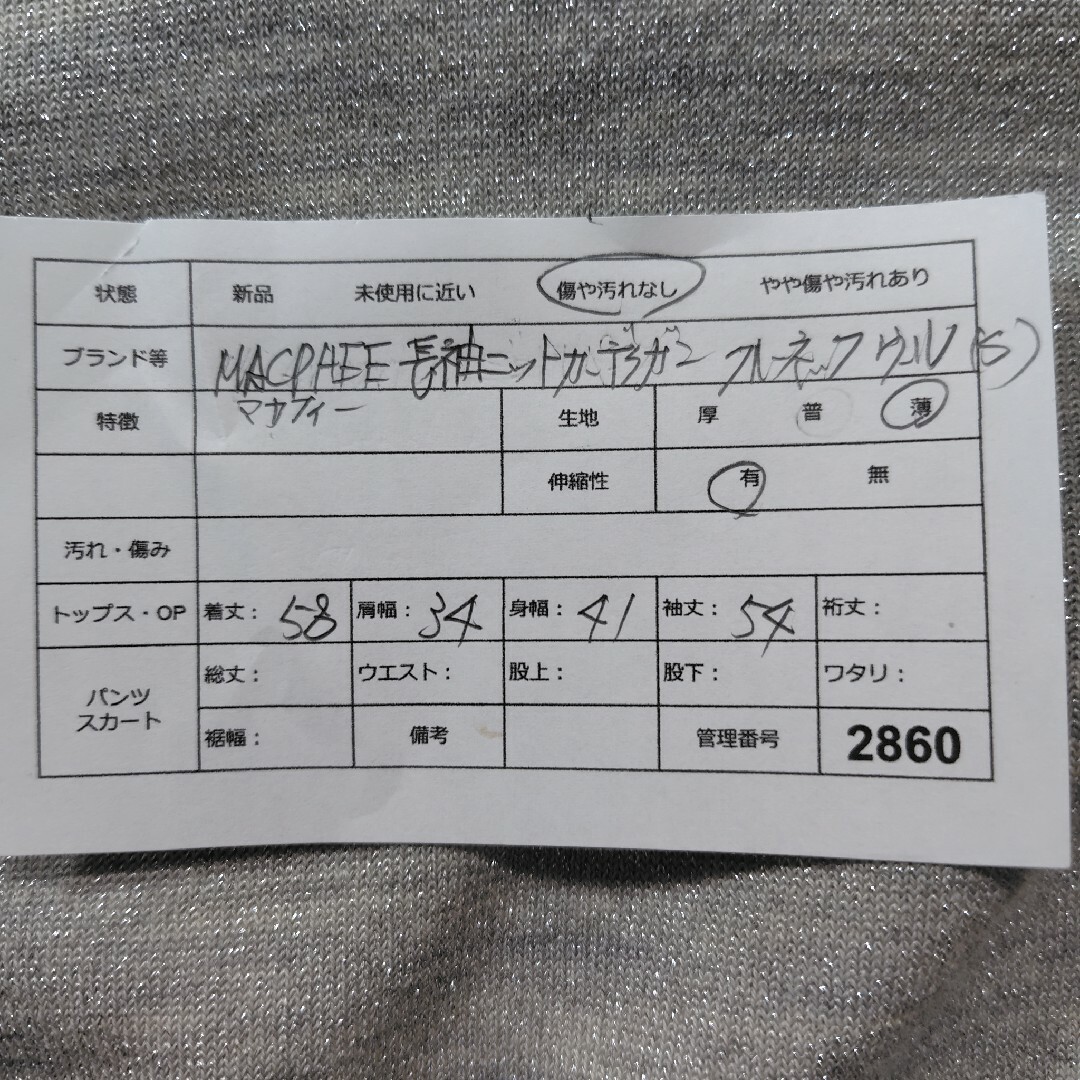 状態 新品 未使用に近い 傷や汚れなし やや傷や汚れあり
ブランド等 MACPHEE 長袖ニットカーデガン クルーネック ウール (S)
マカフィー
特徴 生地 厚 普 薄
伸縮性 有 無
汚れ・傷み
トップス・OP 着丈: 58 肩幅: 34 身幅: 41 袖丈: 54 裄丈:
パンツ スカート 総丈: ウエスト: 股上: 股下: ワタリ:
裾幅: 備考 管理番号 2860